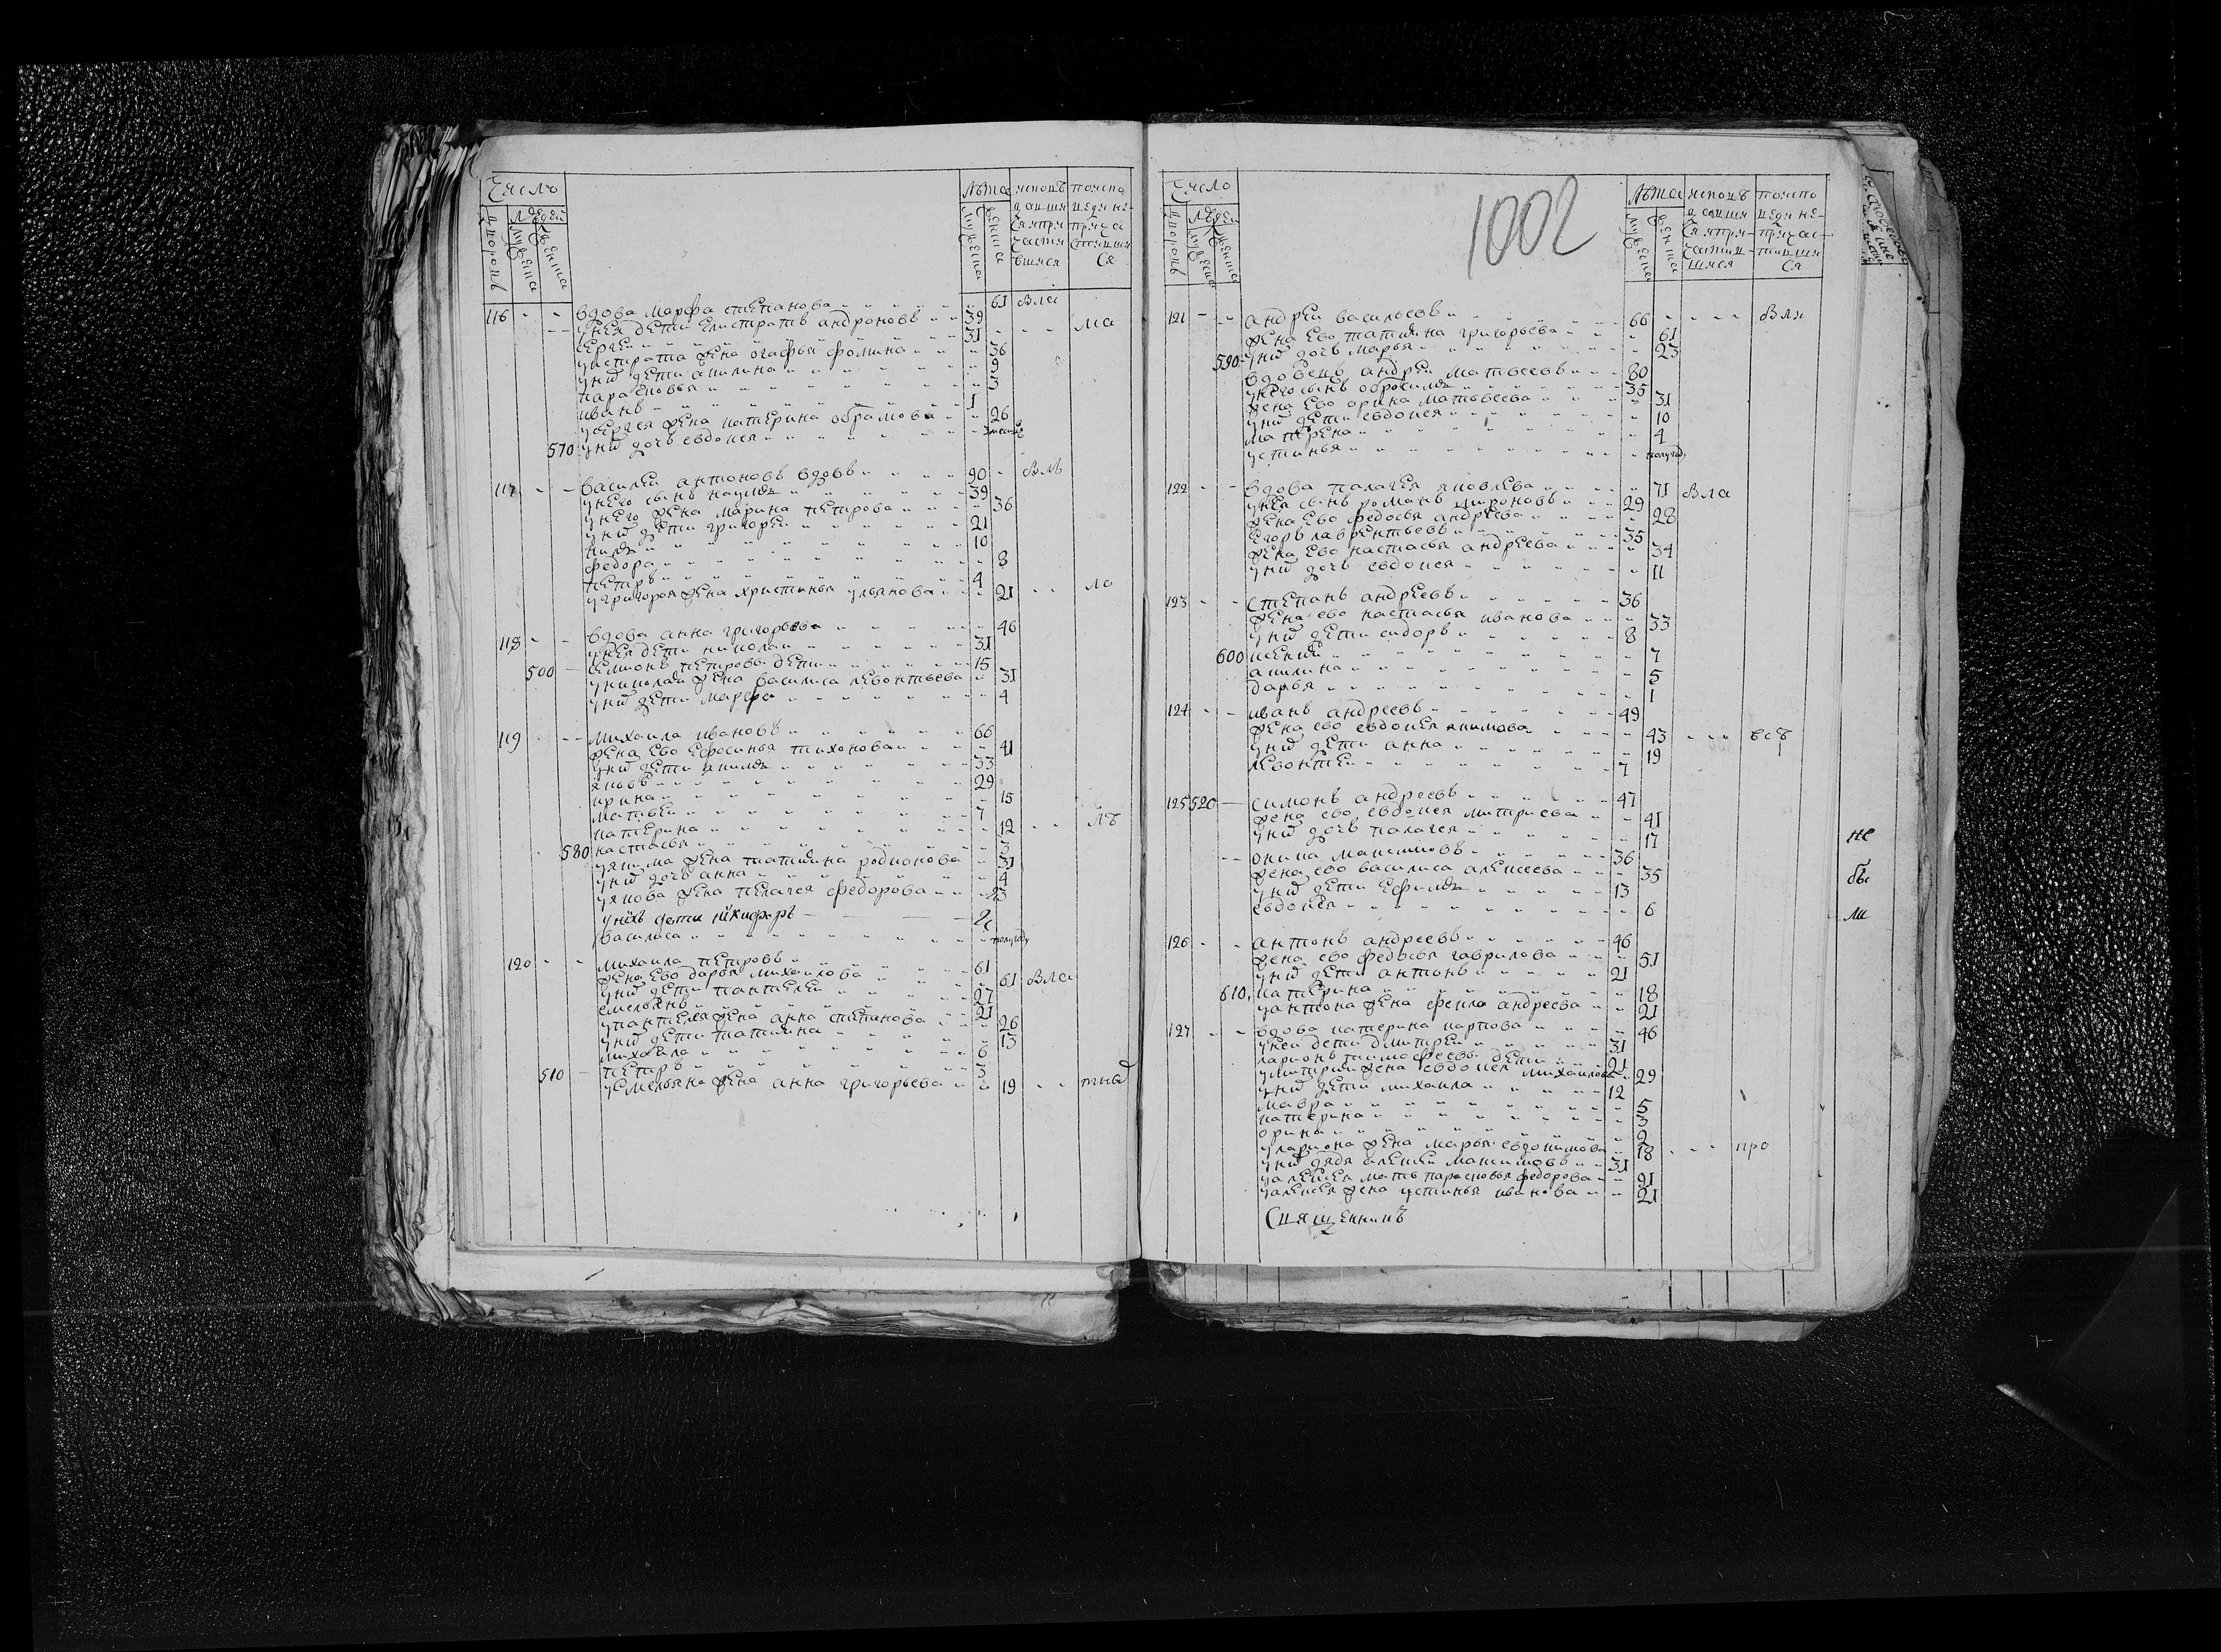 Число
Лѣта
людей
116 - - вдова марфа степанова 61 вла
- - у нея дети елистратъ андроновъ 39
сергеи 31 - - - ма
у истрата жена огафья фомина 36
у них дети акилина 9
парасковья 3
иванъ 1
у сергея жена катерина обрамова 26
570 у них дочь евдокея
117 - - василей антоновъ вдовъ 90 - влѣ
у него сынъ наумъ 39
у него жена марина петрова 36
у них дети григорей 21
10
федора 8
петръ 4
у григоря жена христинья ульянова 21 - - ло
118 - - вдова анна григорьева 46
у нея дети николаи 31
500 - семионъ петровы дети 15
у николая жена василиса левонтьева 31
у них дети марфа 4
119 - - михаила ивановъ 66
жена ево ефросинья тихонова 41
у них дети якимъ 33
яковъ 29
ирина 15
матвеи 7
катерина 12 - - лѣ
580 настасья 3
у якима жена татияна родионова 31
у них дочь анна 4
у якова жена пелагея федорова 23
у нихъ дети никифоръ 2
василиса полугоду
120 - - михаила петровъ 61
жена ево дарья михаилова 61 вла
у них дети пантелеи 27
емельянъ 21
у пантелея жена анна степанова 26
у них дети татияна 13
михаила 6
510 - петръ 3
у емельяна жена анна григорьева 19 - -
1002
Число
Лѣта
людей
121 - - андреи васильевъ 66 - - - - вля
жена ево татияна григорьева 61
590 у них дочь марья 23
вдовецъ андреи матвеевъ 80
у него сынъ обросимъ 35
жена ево орина матвеева 31
у них дети евдокея 10
матрена 4
устинья полугоду
122 - - вдова палагея яковлева 71 вла
у нея сынъ романъ мироновъ 29
жена ево федосья андреева 28
егоръ лаврентьевъ 35
жена ево настасья андреева 34
у них дочь евдокея 11
123 - - степанъ андреевъ 36
жена ево настасья иванова 33
у них дети сидоръ 8
600 7
акилина 5
дарья 1
124 - - иванъ андреевъ 49
жена ево евдокея якимова 43 - - - всѣ
у них дети анна 19
левонтеи 7
125 520 - симонъ андреевъ 47
жена ево евдокея митриева 41
у них дочь палагея 17
- - окина максимовъ 36
жена ево василиса алексеева 35
у них дети ефимъ 13
евдокея 6
126 - - антонъ андреевъ 46
жена ево федосья гаврилова 51
у них дети антонъ 21
610 катерина 18
у антона жена фекла андреева 21
127 - - вдова катерина карпова 46
у неи дети дмитреи 31
ларионъ тимофеевы дети 21
у митрия жена евдокея михаилова 29
у них дети михаила 12
мавра 5
катерина 3
орина 2
у лариона жена марья евдокимова 18 - - - про
у них дядя алексеи максимовъ 31
у алексея мать парасковья федорова 91
у алексея жена устинья иванова 21
Священникъ
не
бы
ли